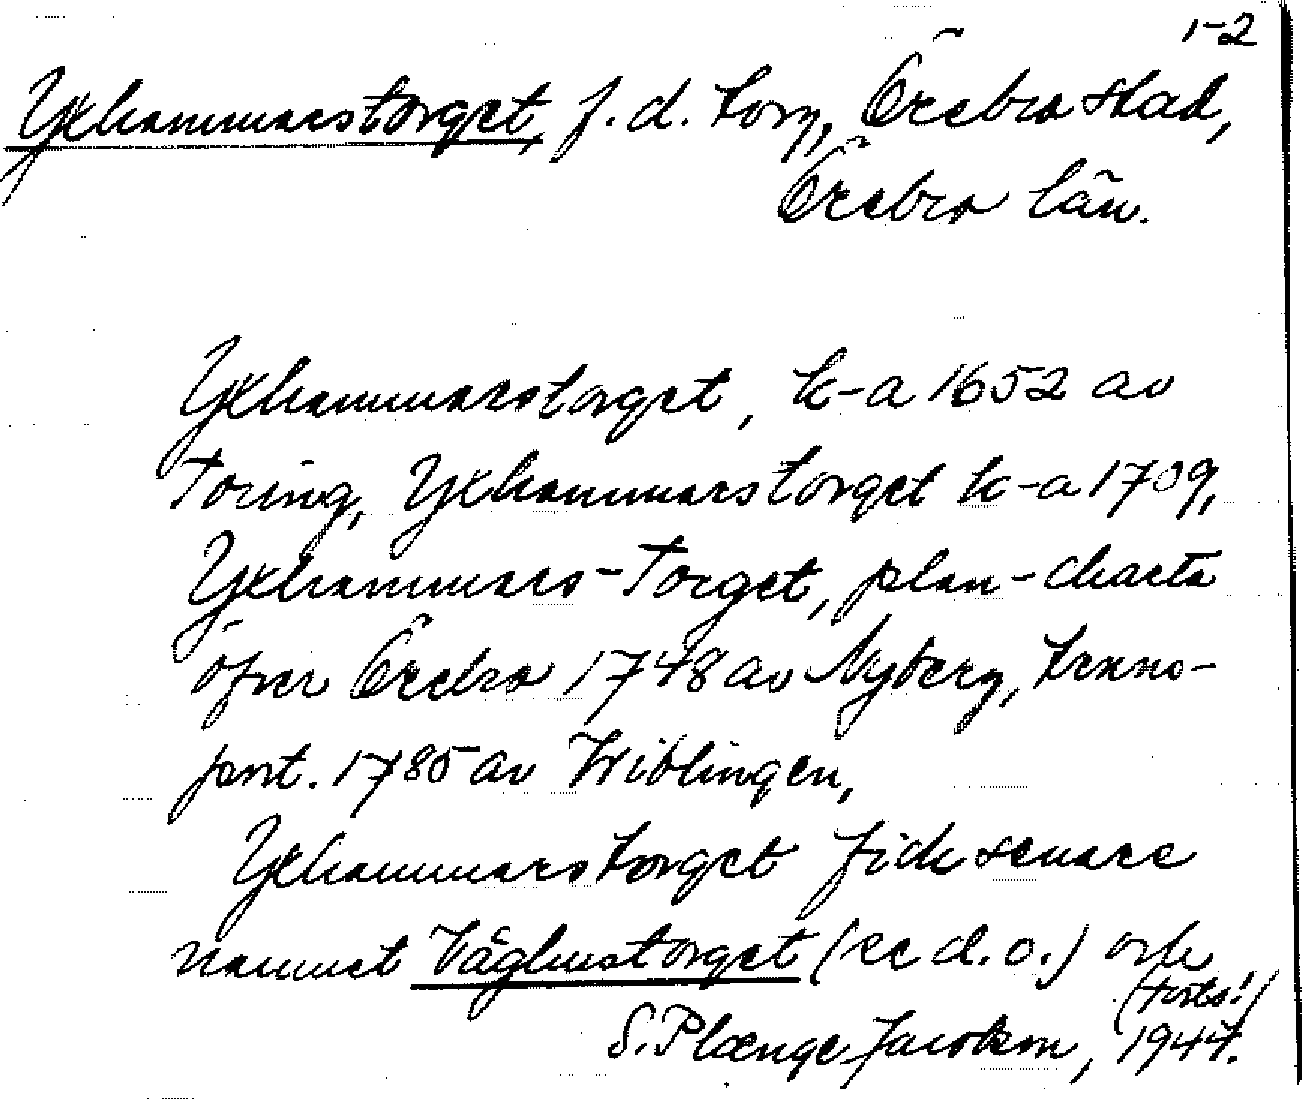 1-2
Yxhammarstorget, f.d. torg, Örebro stad,
Örebro län.
Yxhammarstorget, k-a 1652 av
Toring, Yxhammarstorget k-a 1709,
Yxhammars-Torget, plan-charta
öfver Örebro 1748 av Nyberg, trans-
port. 1785 av Wiblingen,
Yxhammarstorget fick senare
namnet Våghustorget (se d.o.) och
(forts!)
S. Plænge Jacobson, 1947.